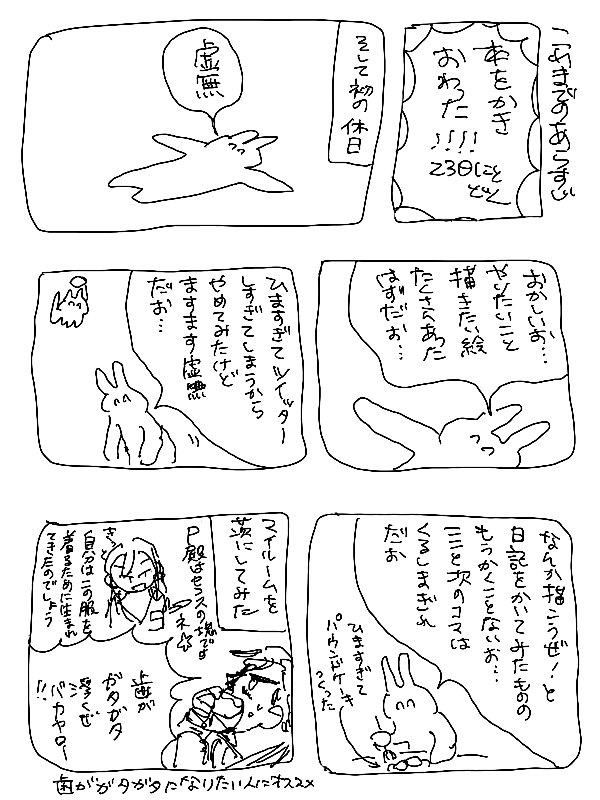 これまでのあらすじ
本をかき
おわった!!!!
230P
そして初の休日
虚無
おかしいお…
やりたいこと
描きたい絵
たくさんあった
はずだお…
ひますぎてツイッター
しすぎてしまうから
やめてみたけど
ますます虚無
だお…
なんか描こうぜ!と
日記をかいてみたものの
もうかくことないお…
三と次のコマは
くるしまぎれ
だお
ひますぎて
パウンドケーキ
つくった
マイルームを
茨にしてみた
P殿はセンスの塊です
ネ☆
きっと
自分はこの服を
着るために生まれ
てきたのでしょう
歯が
ガタガタ
浮くぜ
バカヤロー
!!
歯がガタガタになりたい人にオススメ